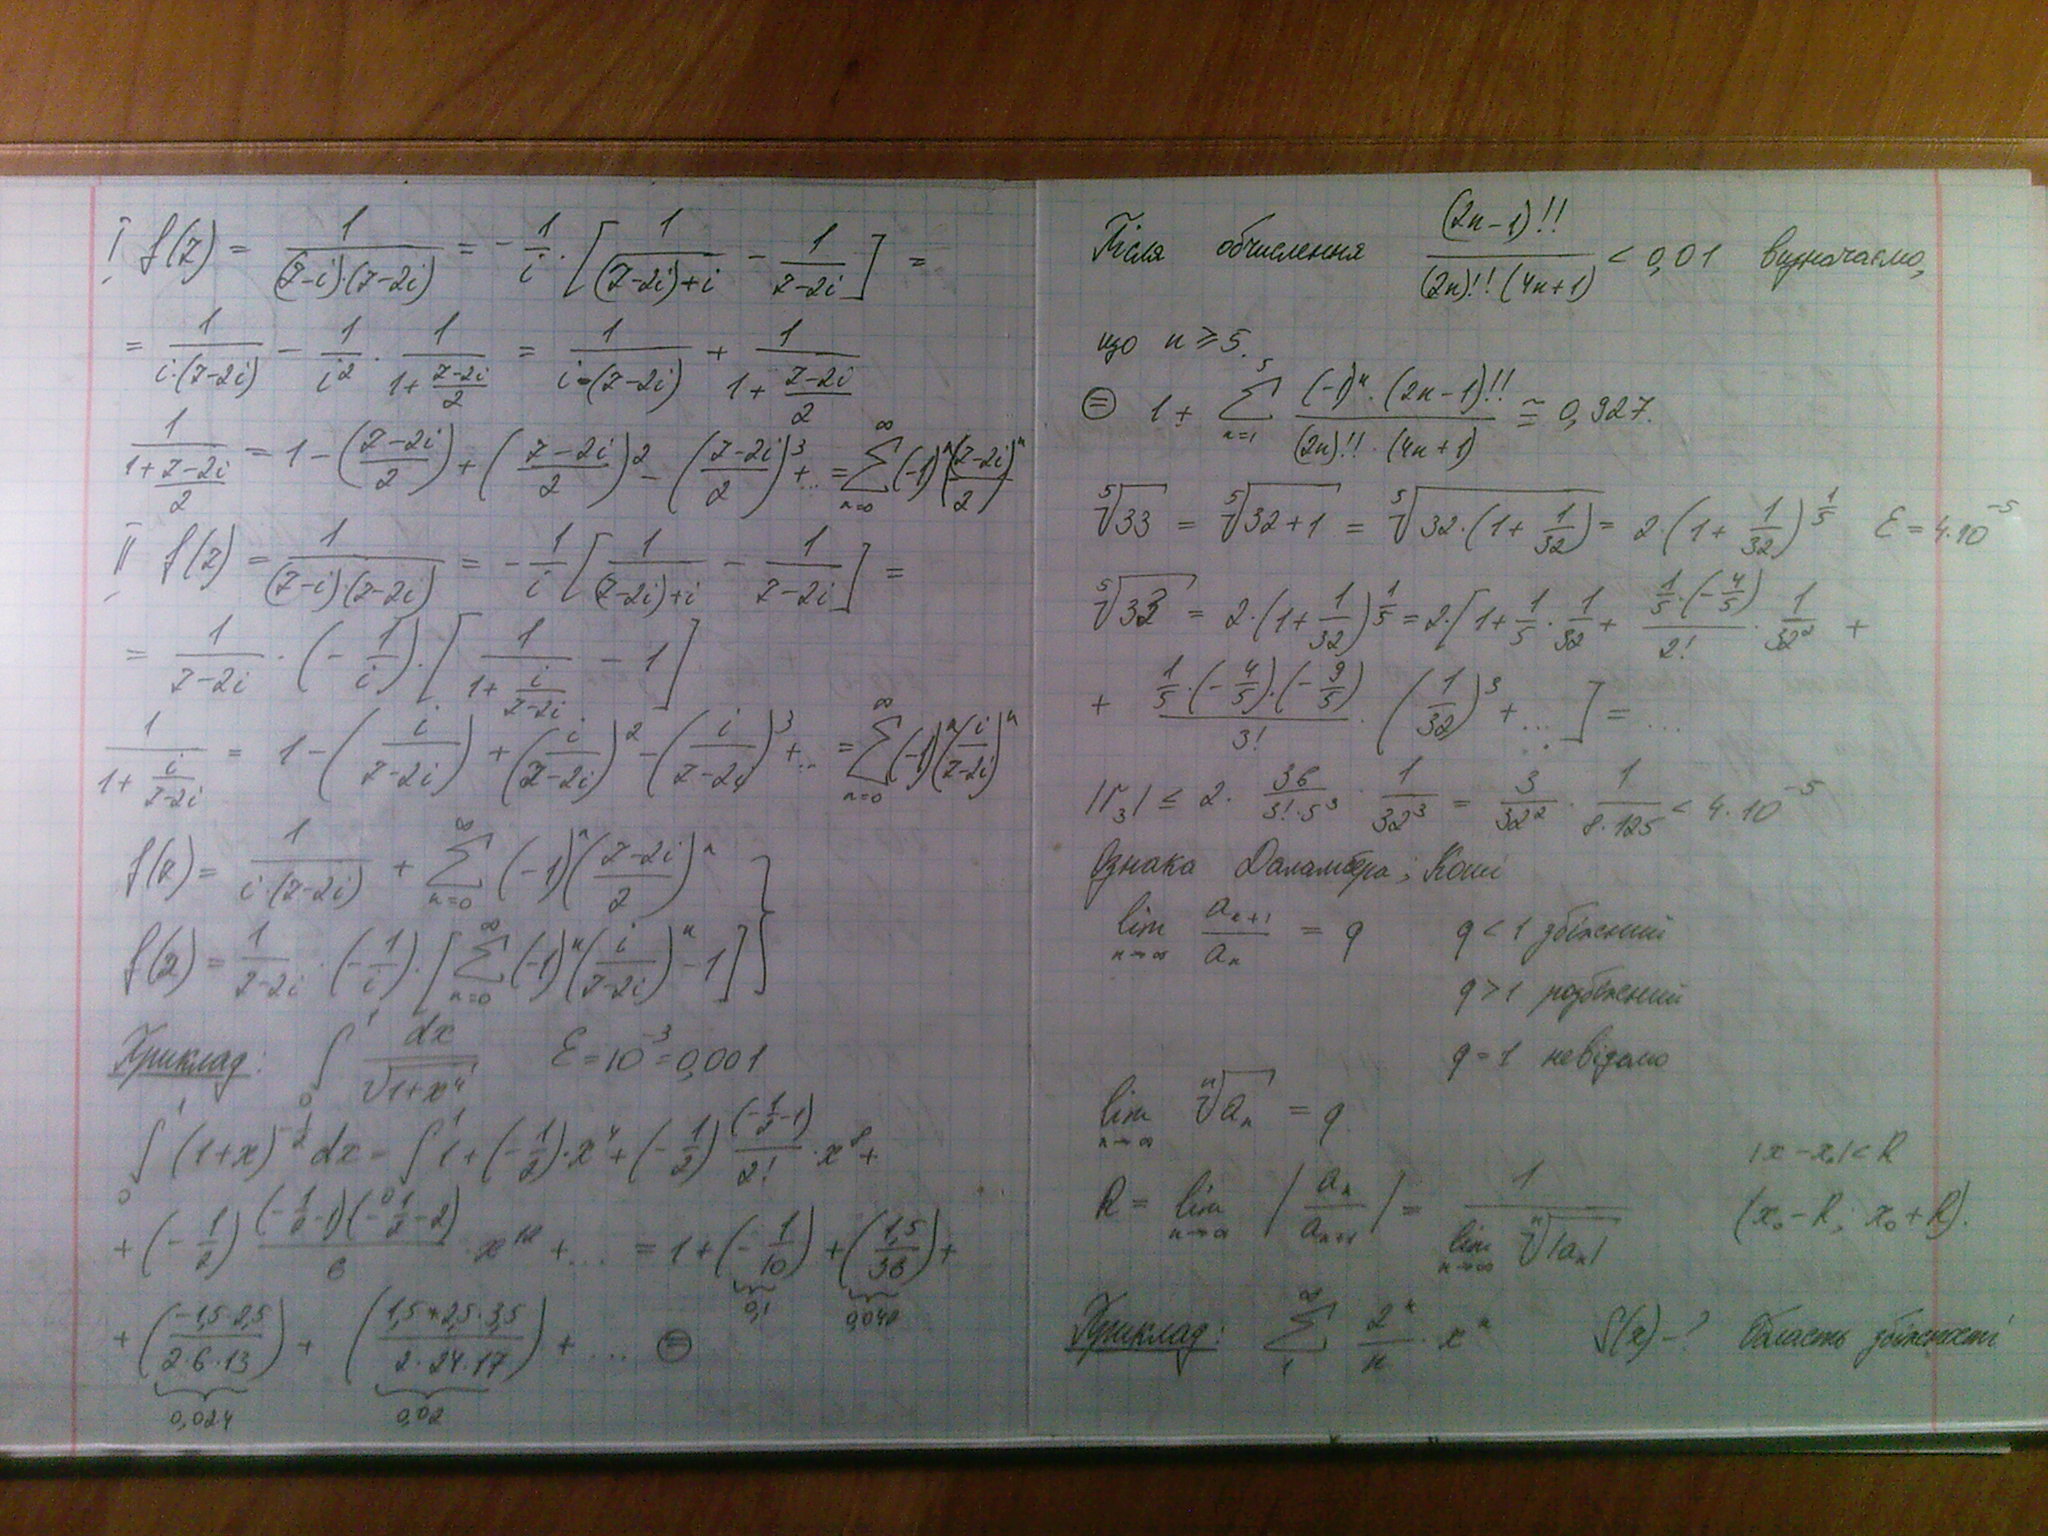 I. f(z) = 1/((z-i)·(z-2i)) = -1/i · [1/((z-2i)+i) - 1/(z-2i)] =
= 1/(i·(z-2i)) - 1/i² · 1/(1+(z-2i)/2) = 1/(i·(z-2i)) + 1/(1+(z-2i)/2)
1/(1+(z-2i)/2) = 1 - ((z-2i)/2) + ((z-2i)/2)² - ((z-2i)/2)³ + ... = ∑_{n=0}^{∞} (-1)ⁿ ((z-2i)/2)ⁿ
II. f(z) = 1/((z-i)(z-2i)) = -1/i [1/((z-2i)+i) - 1/(z-2i)] =
= 1/(z-2i) · (-1/i) · [1/(1+i/(z-2i)) - 1]
1/(1+i/(z-2i)) = 1 - (i/(z-2i)) + (i/(z-2i))² - (i/(z-2i))³ + ... = ∑_{n=0}^{∞} (-1)ⁿ (i/(z-2i))ⁿ
f(z) = 1/(i·(z-2i)) + ∑_{n=0}^{∞} (-1)ⁿ ((z-2i)/2)ⁿ }
f(z) = 1/(z-2i) · (-1/i) · [∑_{n=0}^{∞} (-1)ⁿ (i/(z-2i))ⁿ - 1] }
Приклад: ∫₀¹ dx/√(1+x⁴) ε = 10⁻³ = 0,001
∫₀¹ (1+x)^{-1/2} dx = ∫₀¹ 1 + (-1/2)·x⁴ + (-1/2) (-1/2-1)/2! · x⁸ +
+ (-1/2) (-1/2-1)(-1/2-2)/6 · x¹² + ... = 1 + (-1/10) [0,1] + (1,5/36) [0,042] +
+ (-1,5·2,5/(2·6·13)) [0,024] + (1,5*2,5·3,5/(2·24·17)) [0,02] + ... ⊜
Після обчислення (2n-1)!!/((2n)!!·(4n+1)) < 0,01 визначаємо,
що n ≥ 5.
⊜ 1 + ∑_{n=1}^{5} (-1)ⁿ·(2n-1)!!/((2n)!!·(4n+1)) ≅ 0,927.
⁵√33 = ⁵√(32+1) = ⁵√(32·(1+1/32)) = 2·(1+1/32)^{1/5} ε = 4·10⁻⁵
⁵√33 = 2·(1+1/32)^{1/5} = 2·[1 + 1/5 · 1/32 + (1/5·(-4/5))/2! · 1/32² +
+ (1/5·(-4/5)·(-9/5))/3! · (1/32)³ + ...] = ...
|r₃| ≤ 2 · 36/(3!·5³) · 1/32³ = 3/32² · 1/(8·125) < 4·10⁻⁵
Ознака Даламбера; Коші
lim_{n→∞} a_{n+1}/a_n = q q < 1 збіжний
q > 1 розбіжний
q = 1 невідомо
lim_{n→∞} ⁿ√a_n = q
|x-x₀| < R
R = lim_{n→∞} |a_n/a_{n+1}| = 1/(lim_{n→∞} ⁿ√|a_n|) (x₀-R; x₀+R).
Приклад: ∑_{1}^{∞} 2ⁿ/n · xⁿ S(x) - ? Область збіжності